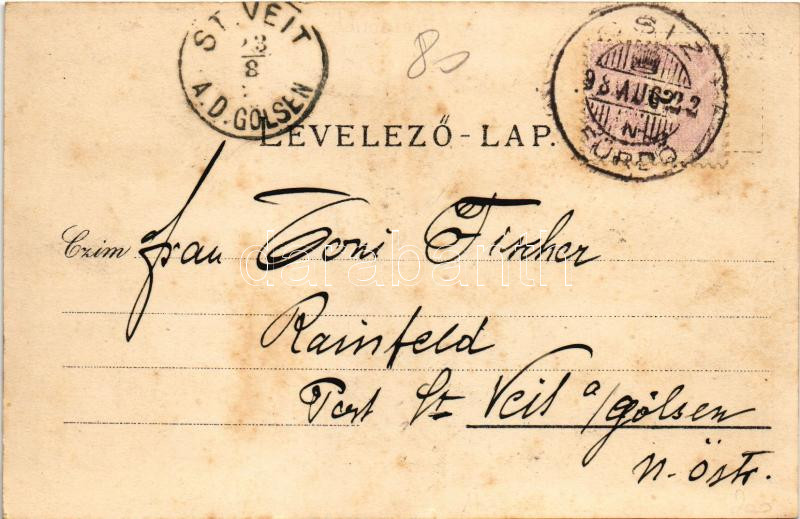 ST. VEIT
23
8
A.D. GÖLSEN
80
98 AUG 22
N
FÜRDŐ
LEVELEZŐ-LAP.
Czim
Frau Toni Fischer
Rainfeld
Post St. Veit a/gölsen
N. Östr.
darabanth